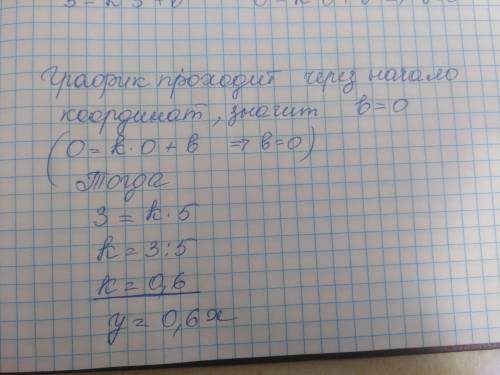 График проходит через начало
координат, значит b=0
(0=k·0+b ⇒b=0)
Тогда
3=k·5
k=3:5
k=0,6
y=0,6x